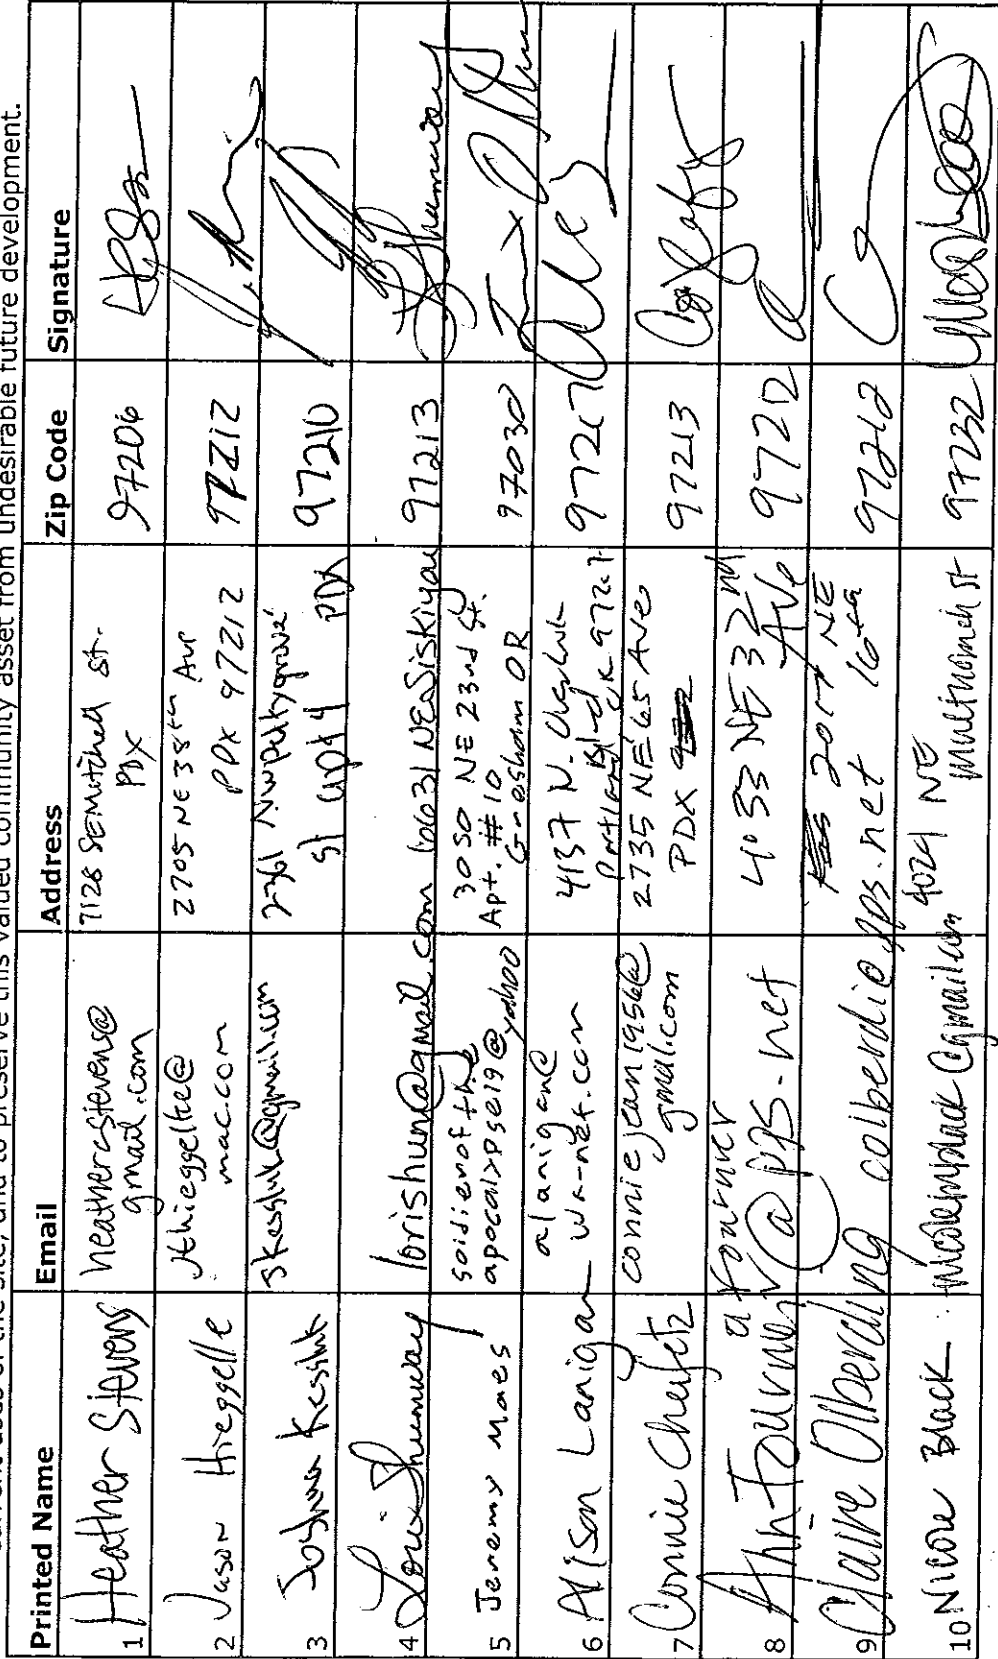 current uses of the site, and to preserve this valued community asset from undesirable future development.
Printed Name Email Address Zip Code Signature
1 Heather Stevens heathercstevens@ gmail.com 7128 SE Mitchell St. PDX 97206
2 Jason Hieggelke jthieggelke@ mac.com 2705 NE 38th Ave PDX 97212 97212
3 Joshua Kessluk @gmail.com 2361 NW st apt 4 PDX 97210
4 Lori Shumway lorishum@gmail.com 6631 NE Siskiyou 97213
5 Jeremy Maes soldierofthe apocalypse19@yahoo 3050 NE 23rd St. Apt. #10 Gresham OR 97030
6 Alison Lanigan alanigan@ wa-net.com 4137 N. Portland 97217
7 Connie Cheifetz conniejean1956@ gmail.com 2735 NE 65 Ave PDX 97213
8 Ann Fourner afourner @pps.net 4033 NE 32nd Ave 97212
9 Claire Olberding colberdi@pps.net NE 16th 97212
10 Nicole Black nicolemblack@gmail.com 4024 NE Multnomah St 97232